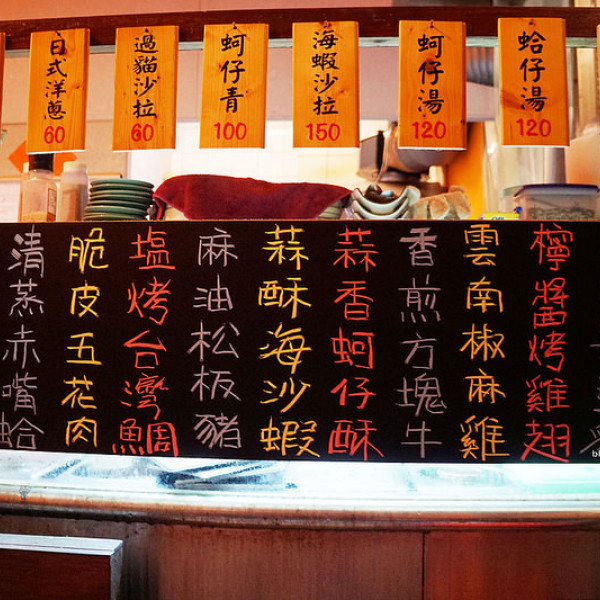 日式洋蔥
60
過貓沙拉
60
蚵仔青
100
海蝦沙拉
150
蚵仔湯
120
蛤仔湯
120
清蒸赤嘴蛤
脆皮五花肉
塩烤台灣鯛
麻油松板豬
蒜酥海沙蝦
蒜香蚵仔酥
香煎方塊牛
雲南椒麻雞
檸醬烤雞翅